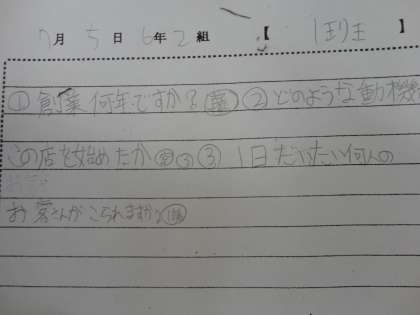 7月5日6年2組【 】
①創業何年ですか？ ②どのような動機
この店を始めたか ③1日だいたい何人の
お客さんがこられますか？